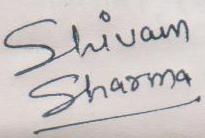 Shivam
Sharma